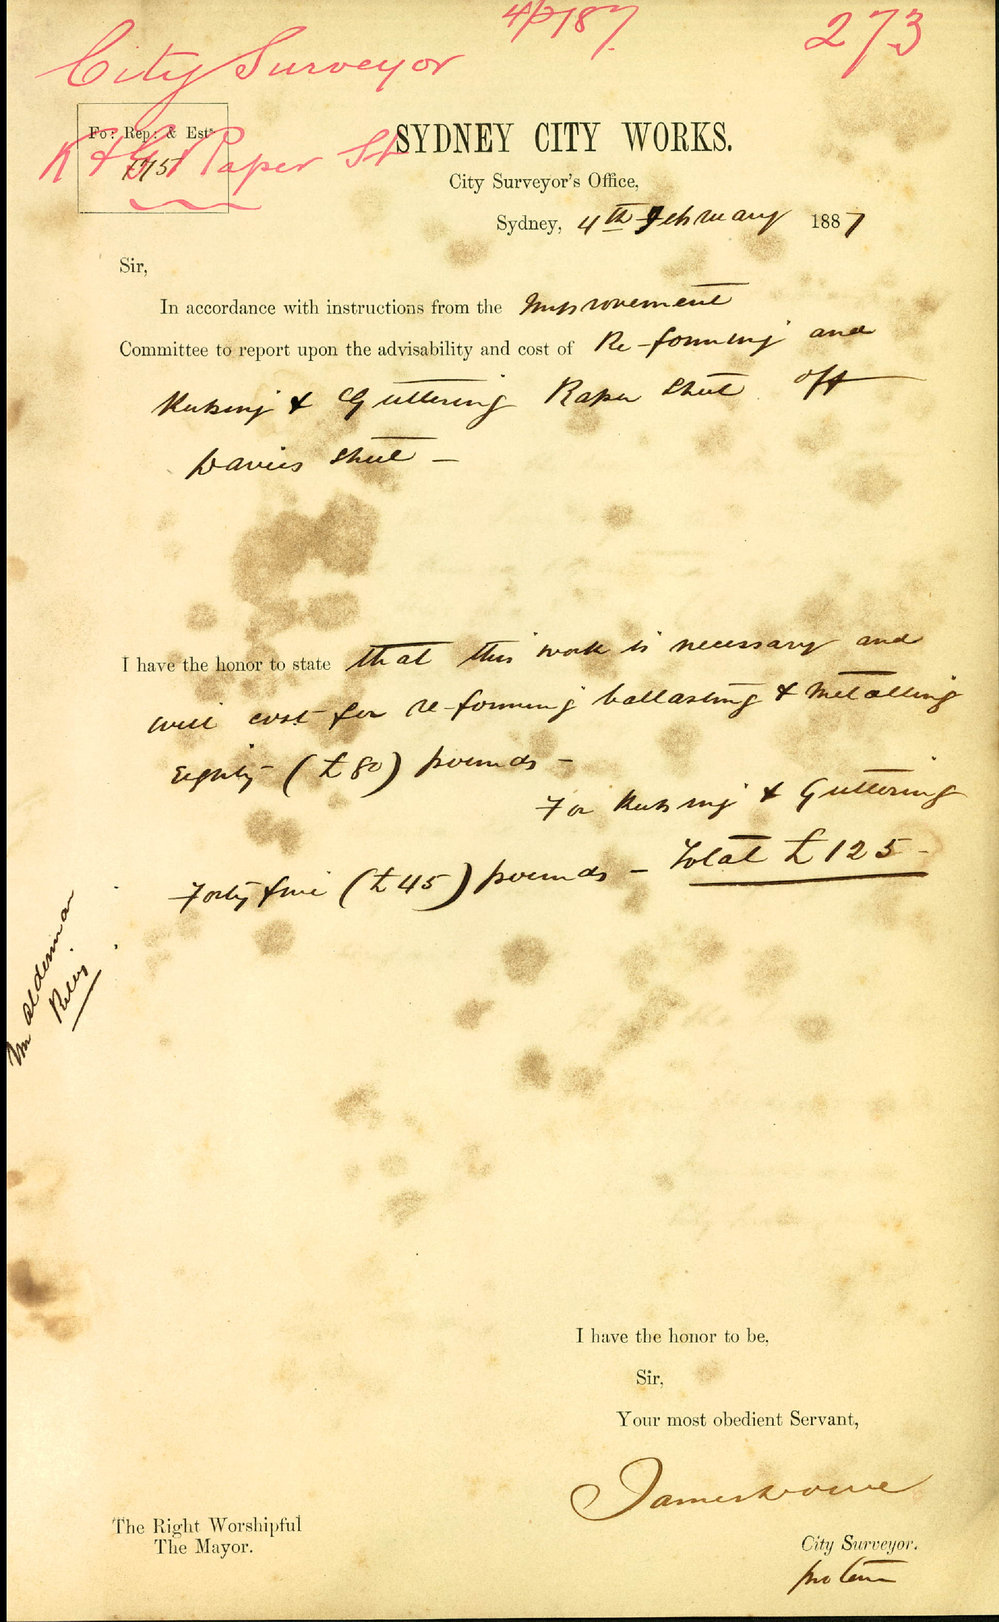 4/2/87
273
City Surveyor
Fo: Rep: & Est
K & G Raper St
175
SYDNEY CITY WORKS.
City Surveyor's Office,
Sydney, 4th February 1887
Sir,
In accordance with instructions from the Improvement
Committee to report upon the advisability and cost of Re-forming and
Kerbing & Guttering Raper Street off
Davies Street -
I have the honor to state that this work is necessary and
will cost for re-forming ballasting & Metalling
Eighty (£80) pounds -
For Kerbing & Guttering
Forty five (£45) pounds - Total £125 -
Mr Alderman
Riley
I have the honor to be,
Sir,
Your most obedient Servant,
James
The Right Worshipful
The Mayor.
City Surveyor.
pro tem